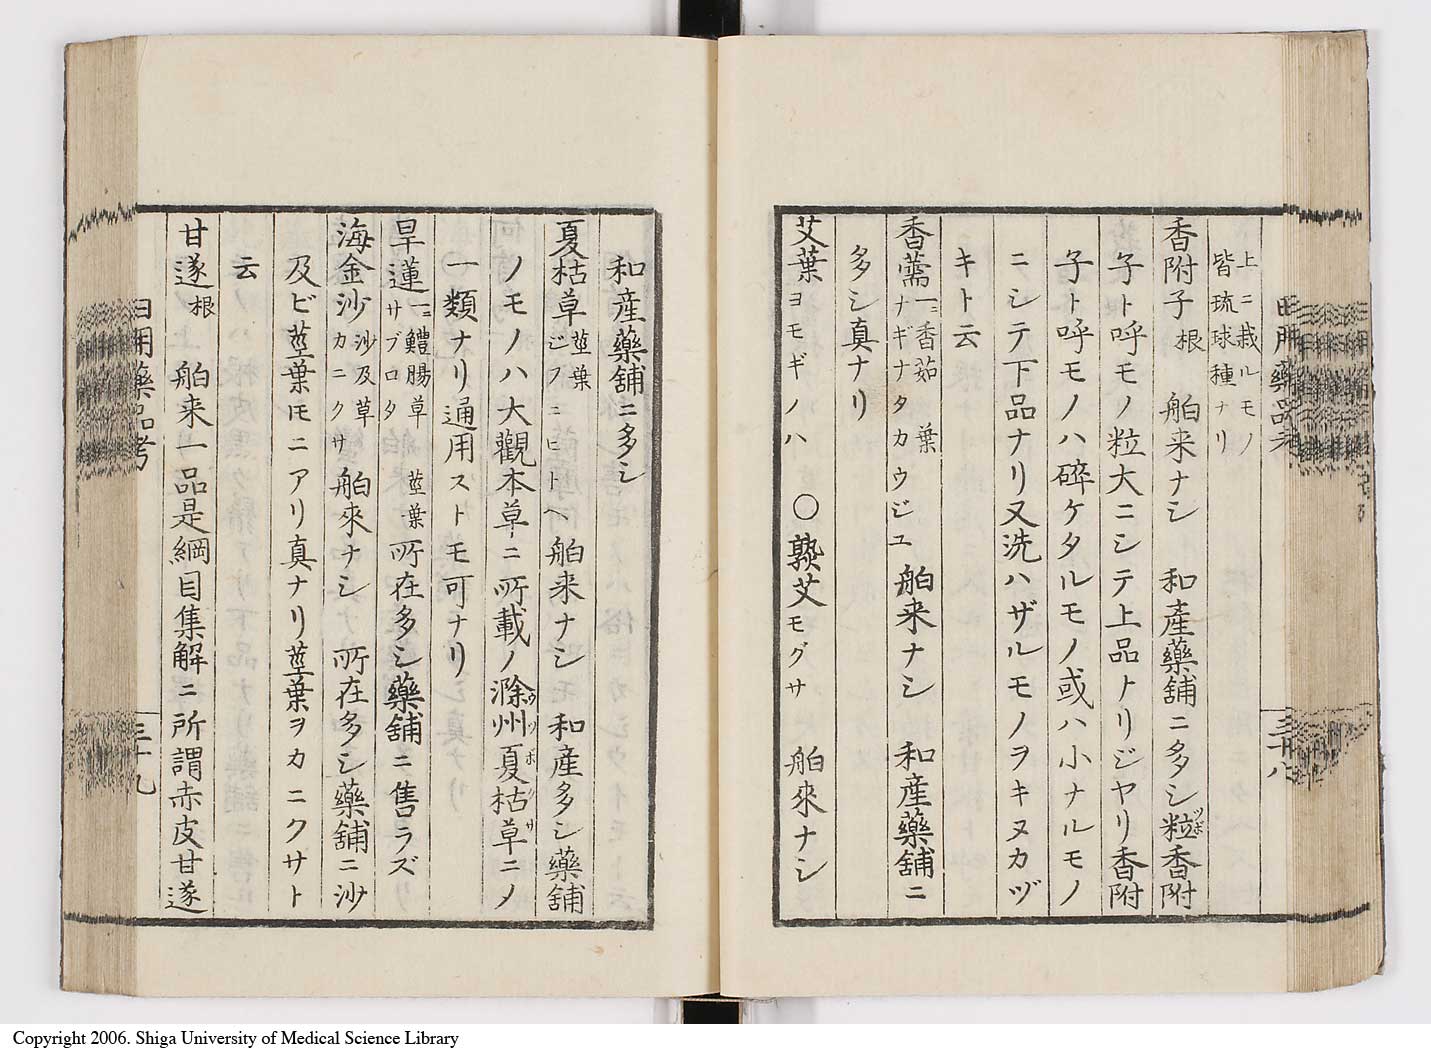 上ニ栽ルモノ
皆琉球種ナリ
香附子根 舶来ナシ 和産藥舖ニ多シ粒香附
子ト呼モノ粒大ニシテ上品トナリジヤリ香附
子ト呼モノハ碎ケタルモノ或ハ小ナルモノ
ニシテ下品ナリ又洗ハザルモノヲキヌカヅ
キト云
香薷一ニ香茹 葉 ナギナタカウジユ 舶来ナシ 和産藥舖ニ
多シ真ナリ
艾葉ヨモギノハ 〇熟艾モグサ 舶來ナシ
和産藥舖ニ多シ
夏枯草莖葉 ジフニヒトヘ 舶来ナシ 和産多シ藥舖
ノモノハ大觀本草ニ所載ノ滁州夏枯草ニノ
ウツボクサ
一類ナリ通用ストモ可ナリ
旱蓮一ニ鱧腸草 莖葉 サブロタ 所在多シ藥舖ニ售ラズ
海金沙沙及草 カニクサ 舶來ナシ 所在多シ藥舖ニ沙
及ビ莖葉ニアリ真ナリ莖葉ヲカニクサト
云
甘遂根 舶来一品是綱目集解ニ所謂赤皮甘遂
日用藥品考
三十九
Copyright 2006. Shiga University of Medical Science Library